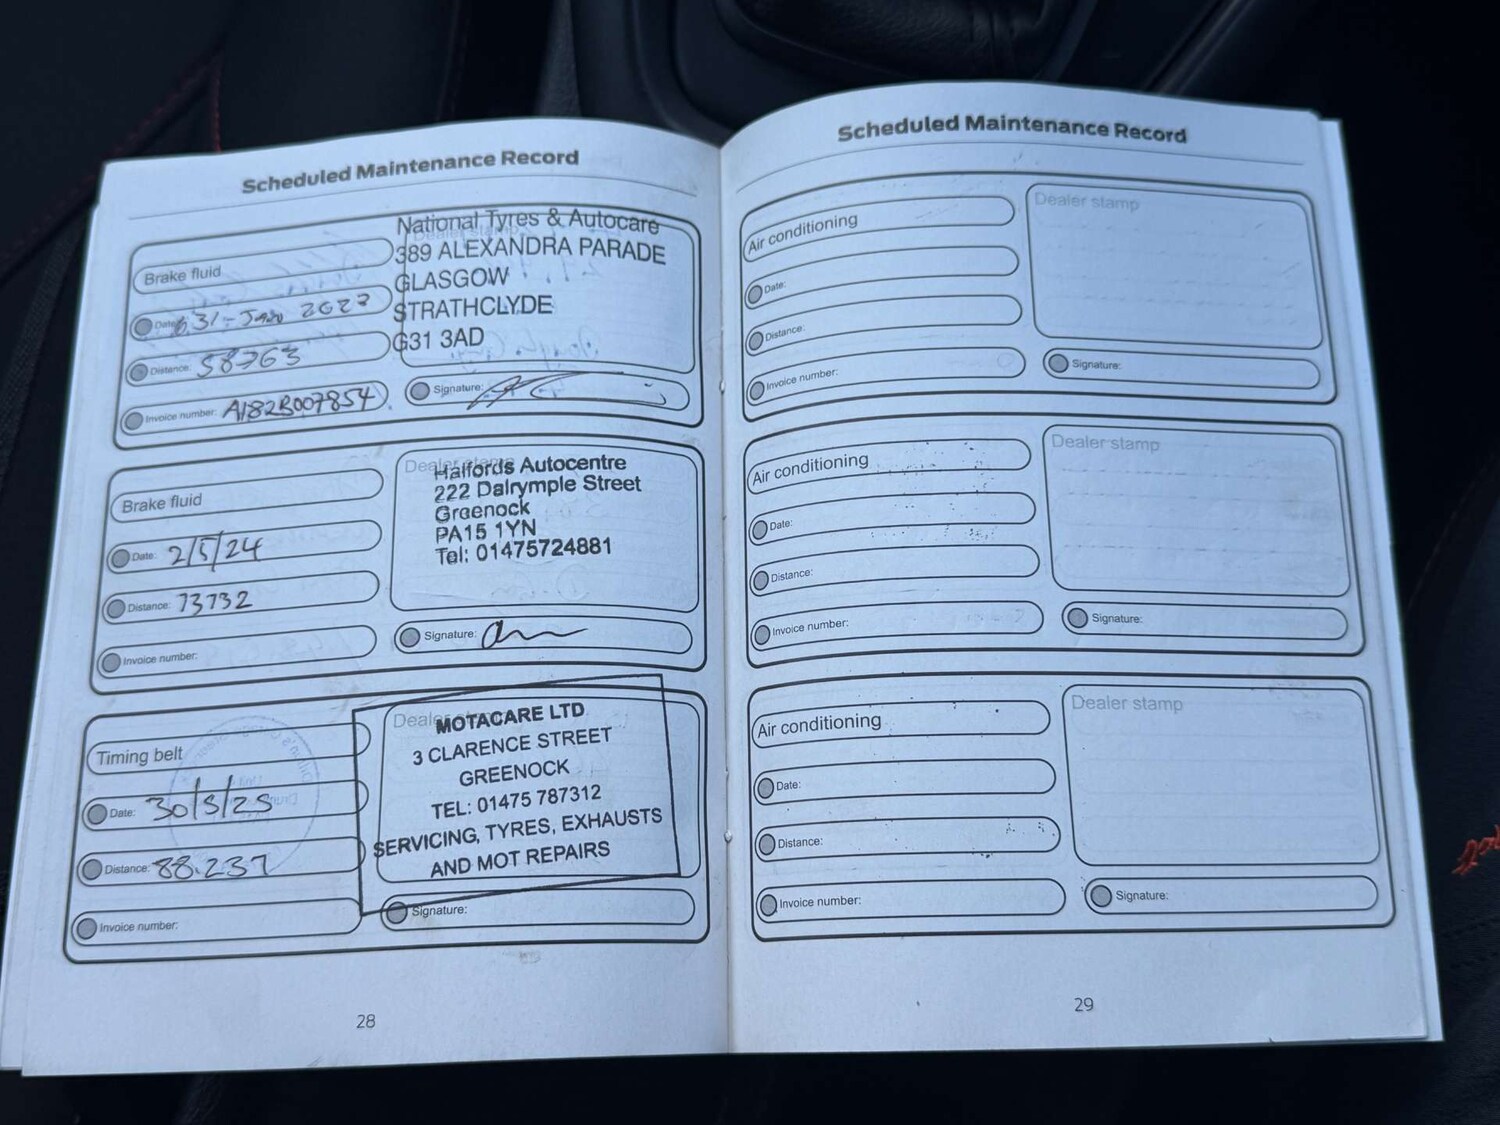 Scheduled Maintenance Record
Brake fluid
Date: 31-Jan 2023
Distance: 58763
Invoice number: A182B007854
Dealer stamp
National Tyres & Autocare
389 ALEXANDRA PARADE
GLASGOW
STRATHCLYDE
G31 3AD
Signature:
Brake fluid
Date: 2/5/24
Distance: 73732
Invoice number:
Dealer stamp
Halfords Autocentre
222 Dalrymple Street
Greenock
PA15 1YN
Tel: 01475724881
Signature:
Timing belt
Date: 30/5/25
Distance: 88.237
Invoice number:
Dealer stamp
MOTACARE LTD
3 CLARENCE STREET
GREENOCK
TEL: 01475 787312
SERVICING, TYRES, EXHAUSTS
AND MOT REPAIRS
Signature:
28
Scheduled Maintenance Record
Air conditioning
Date:
Distance:
Invoice number:
Dealer stamp
Signature:
Air conditioning
Date:
Distance:
Invoice number:
Dealer stamp
Signature:
Air conditioning
Date:
Distance:
Invoice number:
Dealer stamp
Signature:
29